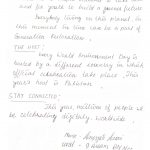 and for youth to build a greener future
Everybody living on this planet, in
this moment in time can be a part of
Generation Restoration.
THE HOST:-
Every World Environment Day is
hosted by a different country, in which
official celebrations take place. This
year's host is Pakistan.
STAY CONNECTED:-
This year, millions of people will
be celebrating digitally, worldwide
Name -